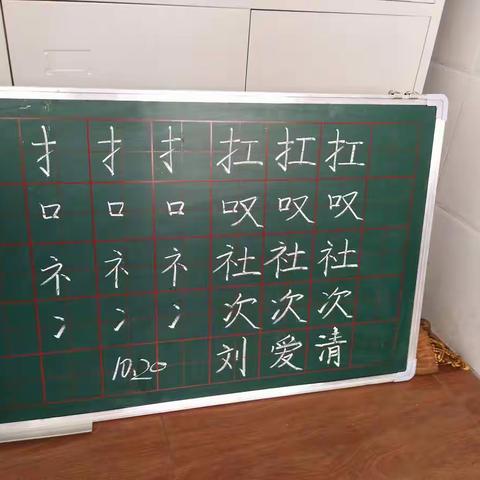 扌 扌 扌 扛 扛 扛
口 口 口 叹 叹 叹
礻 礻 礻 社 社 社
冫 冫 冫 次 次 次
10.20 刘 爱 清